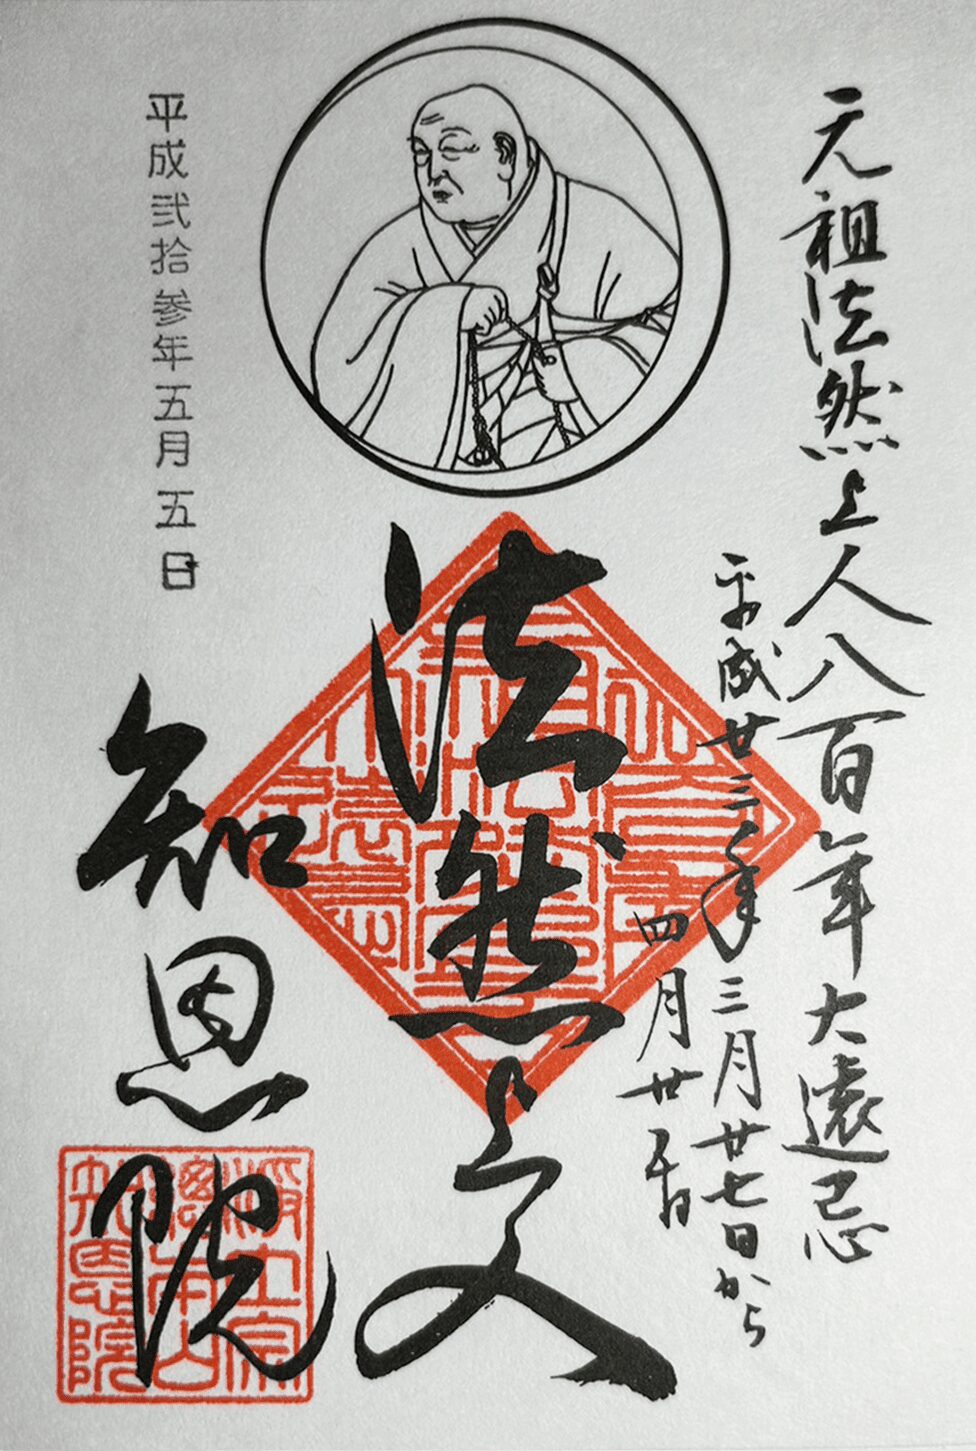 元祖法然上人八百年大遠忌
平成廿三年三月廿七日から
四月廿五日
法然上人
平成弐拾参年五月五日
知恩院
浄土宗
總本山
知恩院